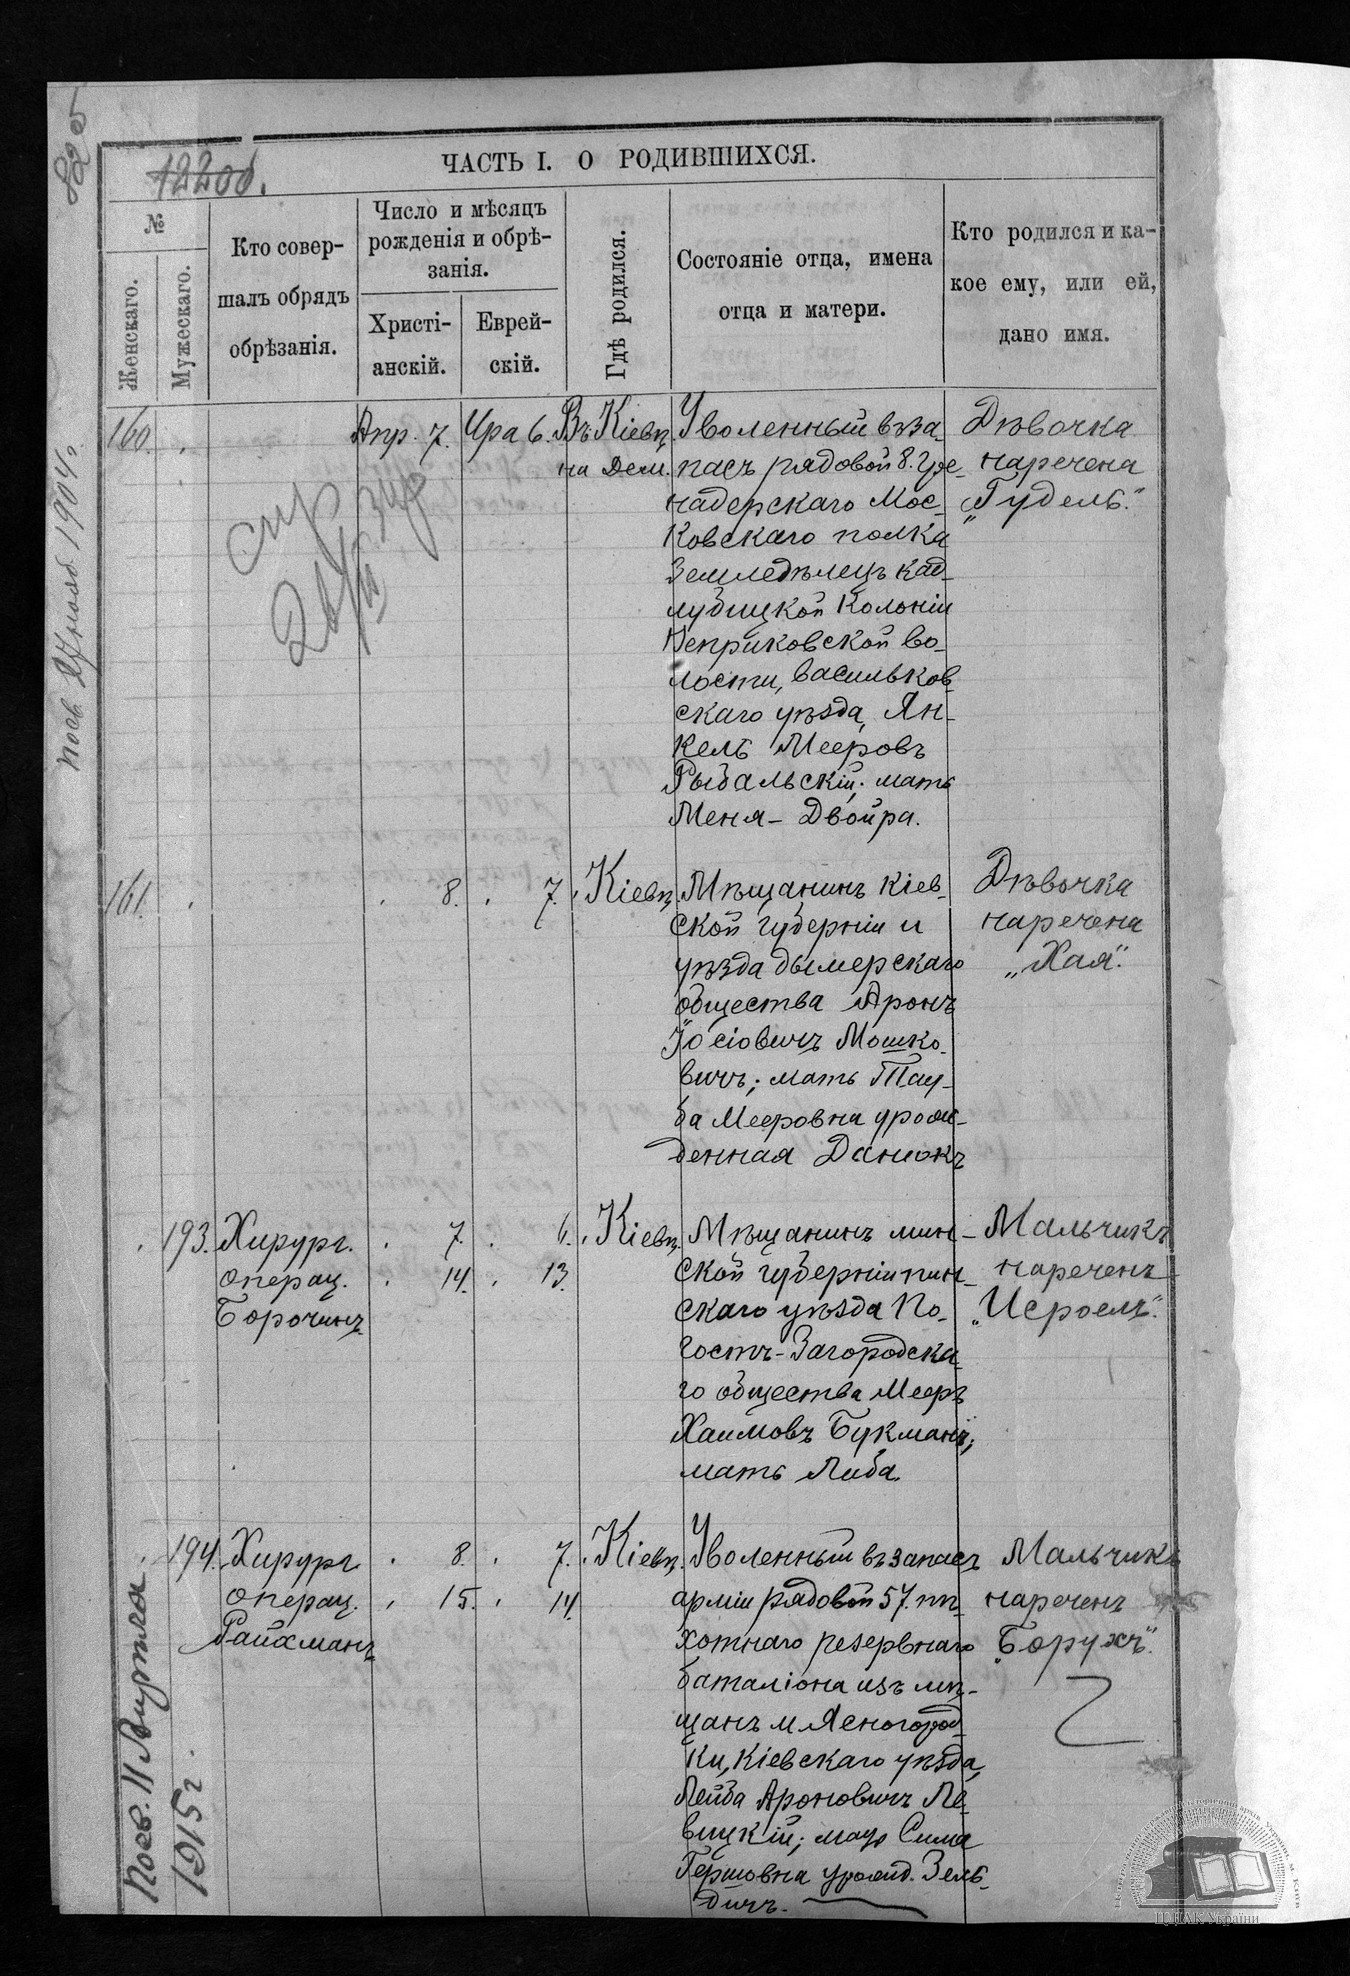 825
12206.
ЧАСТЬ I. О РОДИВШИХСЯ.
№
Женскаго.
Мужескаго.
Кто совер-
шалъ обрядъ
обрѣзанія.
Число и мѣсяцъ
рожденія и обрѣ-
занія.
Христі-
анскій.
Еврей-
скій.
Гдѣ родился.
Состояніе отца, имена
отца и матери.
Кто родился и ка-
кое ему, или ей,
дано имя.
160.
Апр. 7.
Ира 6.
Въ Кіевѣ
на Дем.
Уволенный въ за-
пасъ рядовой 8. Гре-
надерскаго Мос-
ковскаго полка
Земледѣлецъ Кад-
лубицкой Колоніи
Веприковской во-
лости, Васильков-
скаго уѣзда, Ян-
кель Мееровъ
Рыбальскій; мать
Меня - Двойра.
Дѣвочка
наречена
„Гудель".
161.
8.
7.
Кіевѣ
Мѣщанинъ Кіев-
ской губерніи и
уѣзда дымерскаго
общества Аронъ
Іосіовичъ Мошко-
вичъ; мать Тау-
ба Мееровна урож-
денная Данюкъ
Дѣвочка
наречена
„Хая".
193.
Хирург.
операц.
Борочинъ
7.
14.
6.
13.
Кіевѣ
Мѣщанинъ мин-
ской губерніи пин-
скаго уѣзда По-
гостъ-Загородска-
го общества Мееръ
Хаимовъ Букманъ;
мать Либа
Мальчикъ
нареченъ
„Исроель".
194.
Хирург
операц.
Райхманъ
8.
15.
7.
14.
Кіевѣ
Уволенный въ запасъ
арміи рядовой 57. пѣ-
хотнаго резервнаго
баталіона изъ мѣ-
щанъ м. Ясногород-
ки, Кіевскаго уѣзда,
Лейба Ароновичъ Ле-
вицкій; мать Сима
Гершовна урожд. Зель-
дичъ.
Мальчикъ
нареченъ
„Борухъ".
1904 г.
1915 г.
ЦДІАК України